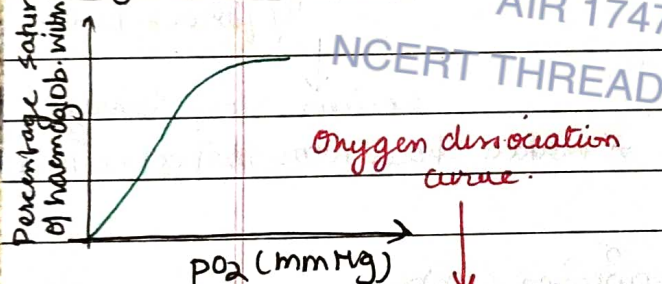 AIR 1747
NCERT THREAD
Percentage satur
of haemoglob. with
Oxygen dissociation
curve.
pO2 (mmHg)